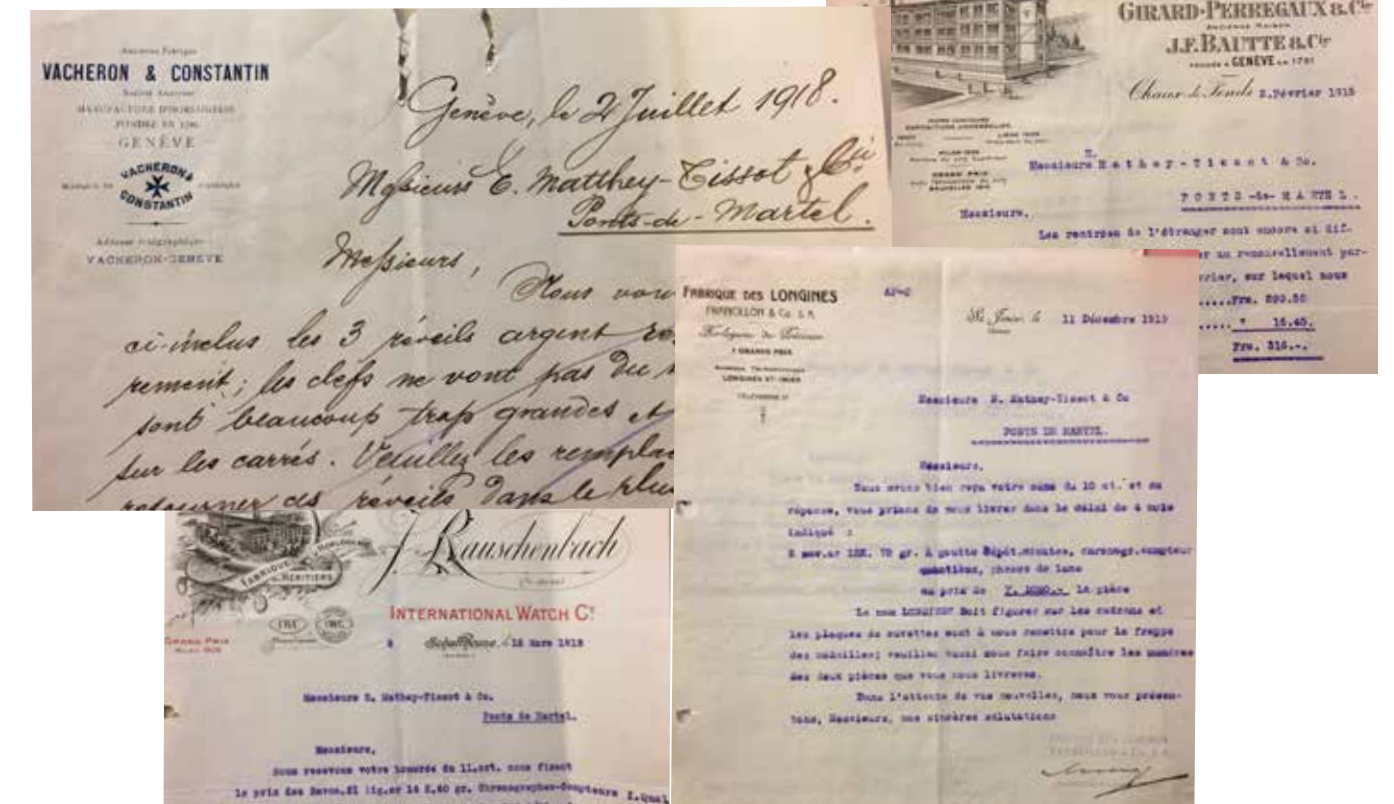 Ancienne Fabrique
VACHERON & CONSTANTIN
Société Anonyme
MANUFACTURE D'HORLOGERIE
FONDÉE EN 1785
GENÈVE
VACHERON &
CONSTANTIN
Adresse télégraphique
VACHERON-GENÈVE
Genève, le 2 Juillet 1918.
Messieurs E. Matthey-Tissot & Cie
Ponts-de-Martel.
Messieurs,
Nous vous
ci-inclus les 3 réveils argent
rement; les clefs ne vont pas du
sont beaucoup trop grandes et
sur les carrés. Veuillez les remplac
retourner ces réveils dans le plus
GIRARD-PERREGAUX & Cie
Ancienne Maison
J.F. BAUTTE & Cie
FONDÉE A GENÈVE en 1791
Chaux-de-Fonds 2.Février 1915
GRAND PRIX
BRUXELLES
Messieurs Mathey-Tissot & Co.
PONTS-de-MARTEL.
Messieurs,
Les rentrées de l'étranger sont encore si dif-
er un renouvellement par-
vrier, sur lequel nous
.....Frs.
..... " 15.45.
Frs. 315.-.
FABRIQUE DES LONGINES
FRANCILLON & Co. S.A.
7 GRANDS PRIX
LONGINES ST-IMIER
St. Imier, le 11 Décembre 1919
Messieurs E. Mathey-Tissot & Co
PONTS DE MARTEL.
Messieurs,
Nous avons bien reçu votre carte du 10 ct. et en
réponse, vous prions de nous livrer dans le délai de 4 mois
indiqué :
2 sav.or 18K. 70 gr. à goutte Répét.minutes, chronogr.compteur
quantième, phases de lune
au prix de la pièce
Le nom LONGINES doit figurer sur les cadrans et
les plaques de cuvettes sont à nous remettre pour la frappe
des médailles; veuillez aussi nous faire connaître les numéros
des deux pièces que vous nous livrerez.
Dans l'attente de vos nouvelles, nous vous présen-
tons, Messieurs, nos sincères salutations
FABRIQUE
HORLOGERIE
HÉRITIERS
J. Rauschenbach
INTERNATIONAL WATCH Co
GRAND PRIX
MILAN 1906
IWC
Schaffhouse, le 12 Mars 1918
Messieurs E. Mathey-Tissot & Co.
Ponts de Martel.
Messieurs,
Nous recevons votre honorée du 11.crt. nous fixant
le prix des Savon.21 lig.or 14 K.60 gr. Chronographes-Compteurs I.Qual